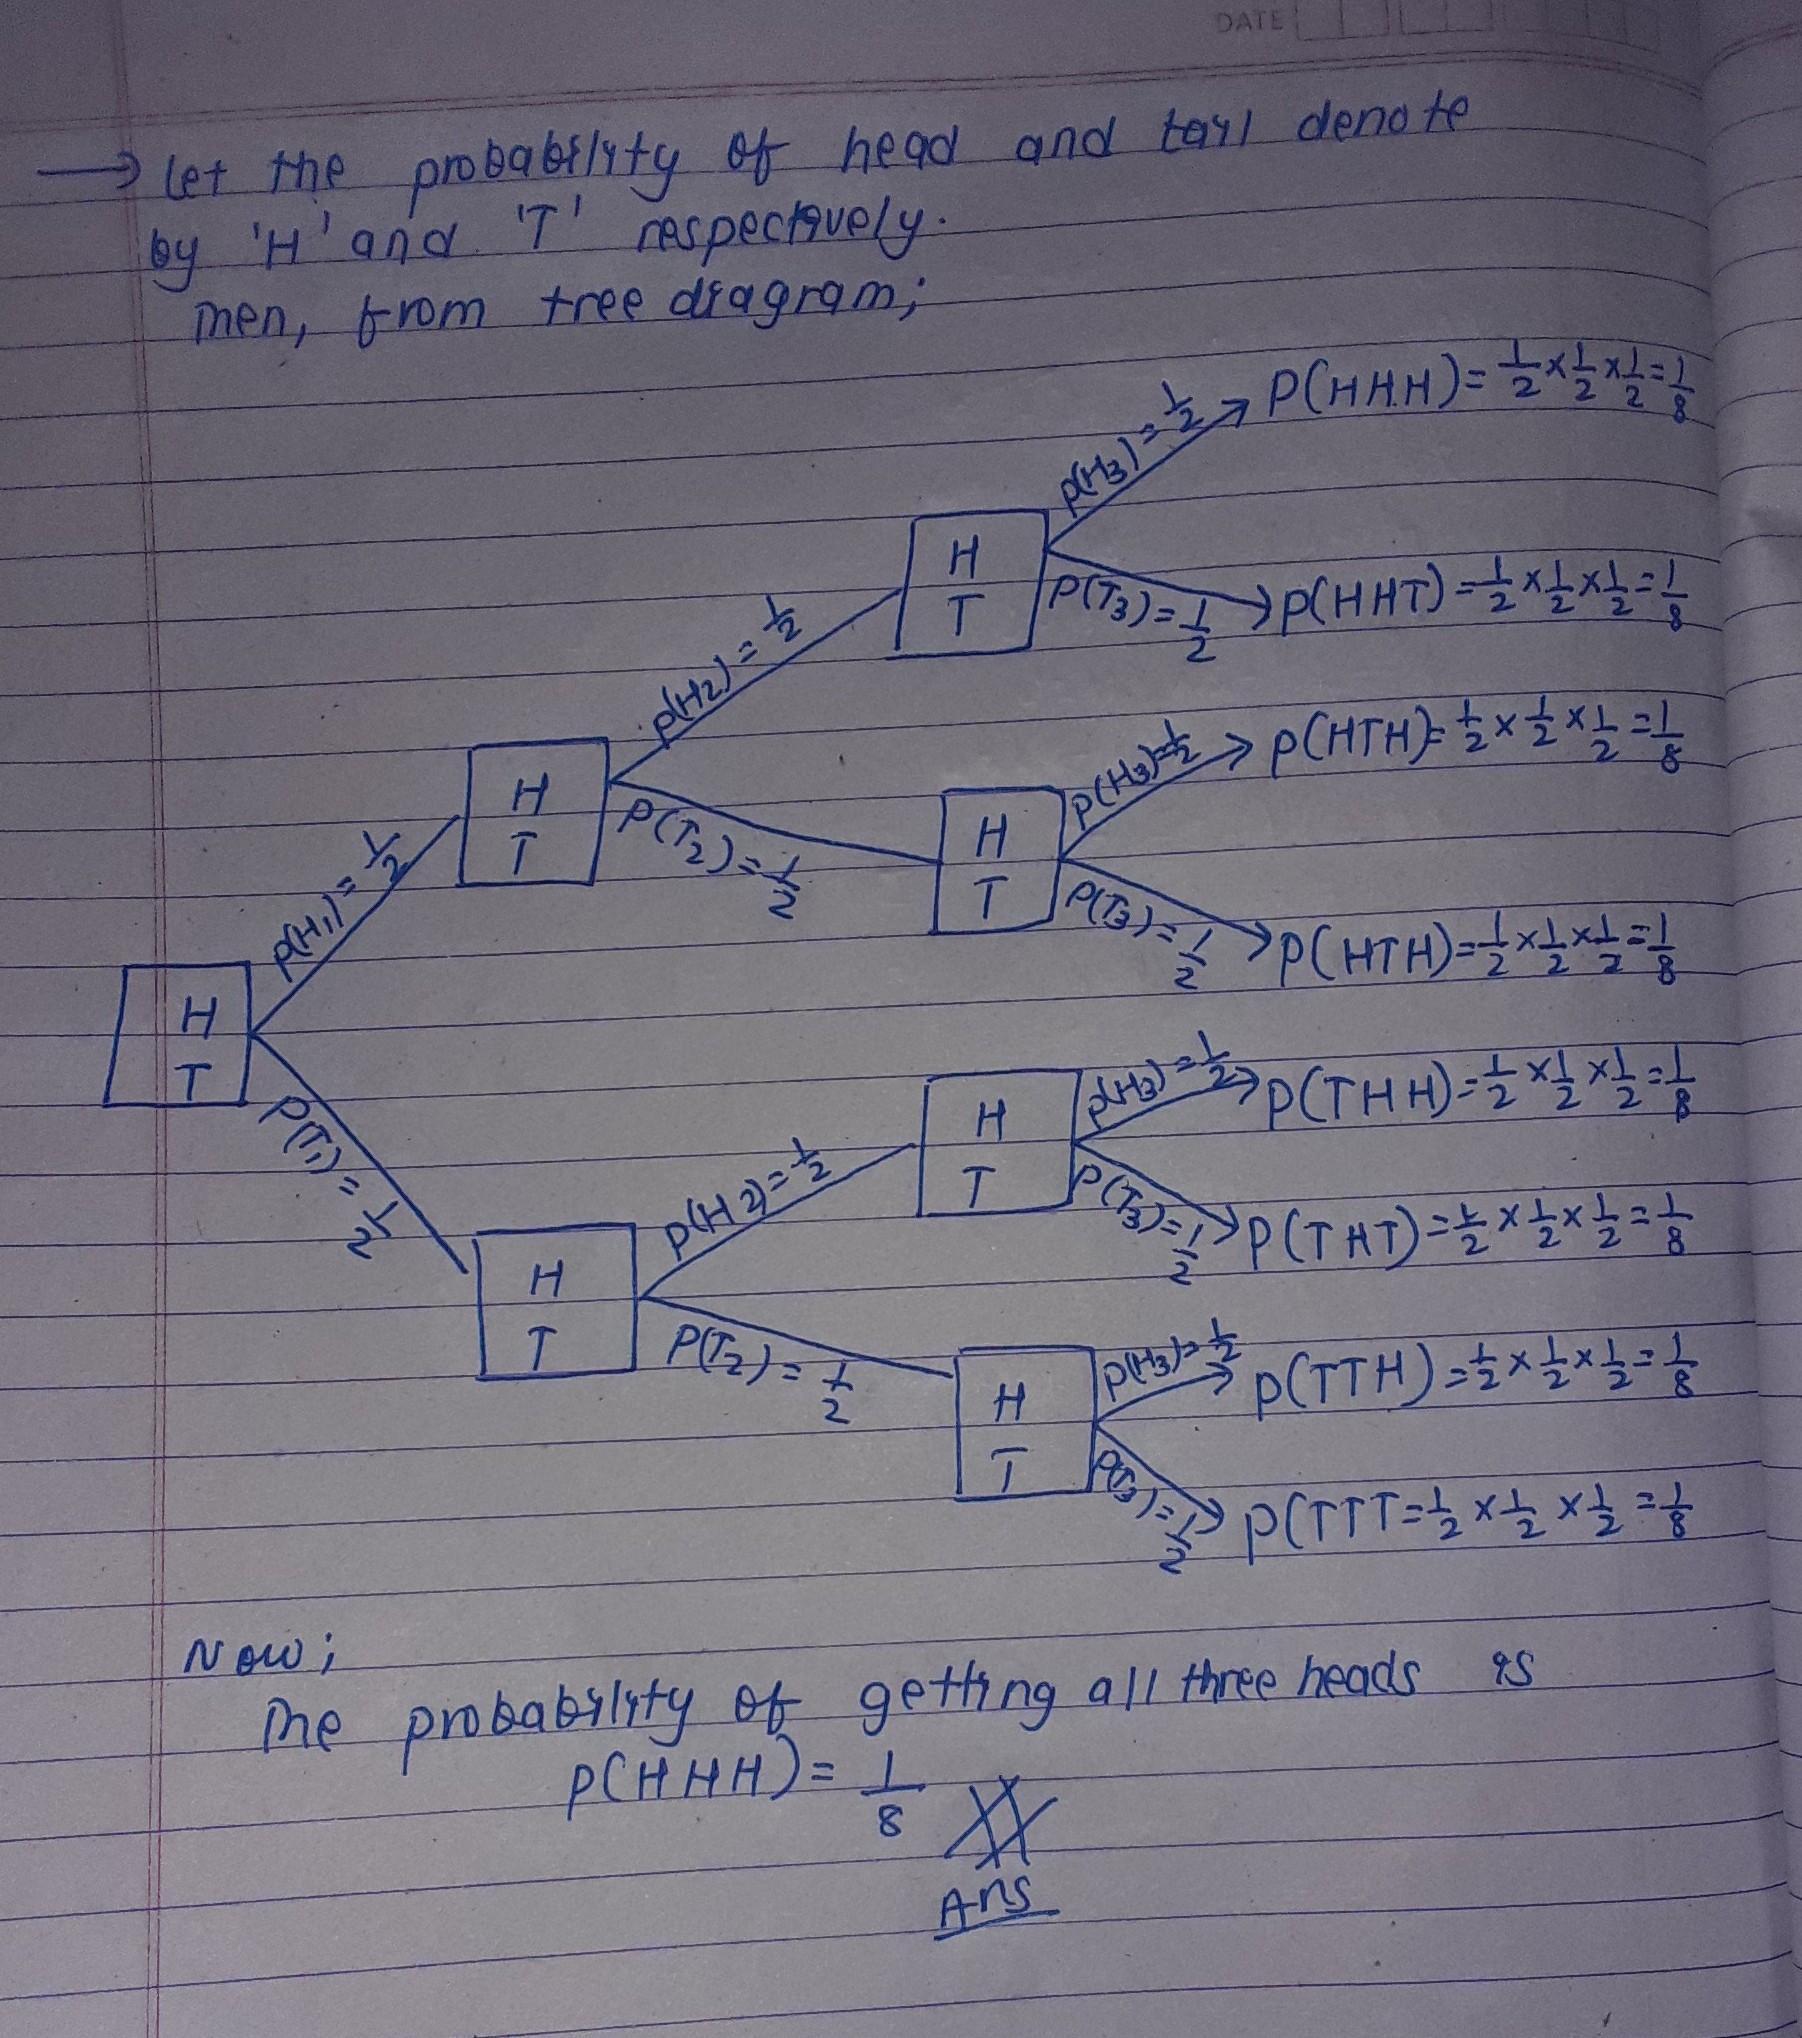 DATE
→ let the probability of head and tail denote
by 'H' and 'T' respectively.
Then, from tree diagram;
P(HHH) = 1/2 × 1/2 × 1/2 = 1/8
P(H3) = 1/2
H
T
P(T3) = 1/2
P(HHT) = 1/2 × 1/2 × 1/2 = 1/8
P(H2) = 1/2
P(HTH) = 1/2 × 1/2 × 1/2 = 1/8
P(H3) = 1/2
H
T
P(T2) = 1/2
H
T
P(T3) = 1/2
P(HTH) = 1/2 × 1/2 × 1/2 = 1/8
P(H1) = 1/2
H
T
P(T1) = 1/2
P(H3) = 1/2
P(THH) = 1/2 × 1/2 × 1/2 = 1/8
H
T
P(H2) = 1/2
P(T3) = 1/2
P(THT) = 1/2 × 1/2 × 1/2 = 1/8
H
T
P(T2) = 1/2
P(H3) = 1/2
P(TTH) = 1/2 × 1/2 × 1/2 = 1/8
H
T
P(T3) = 1/2
P(TTT = 1/2 × 1/2 × 1/2 = 1/8
Now;
The probability of getting all three heads is
P(HHH) = 1/8
Ans